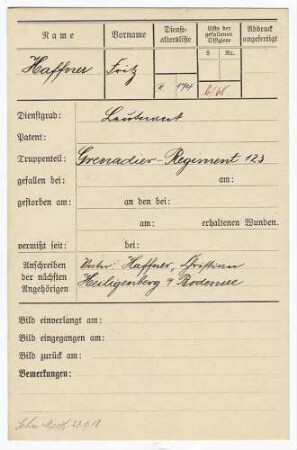 Name Vorname Dienst-altersliste Liste der gefallenen Offiziere Abdruck angefertigt
S Nr.
Haffner Fritz II 194
Dienstgrad: Leutnant
Patent:
Truppenteil: Grenadier-Regiment 123
gefallen bei: am:
gestorben am: an den bei:
am: erhaltenen Wunden.
vermißt seit: bei:
Anschreiben der nächsten Angehörigen
Vater: Haffner, Christian
Heiligenberg a/ Bodensee
Bild einverlangt am:
Bild eingegangen am:
Bild zurück am:
Bemerkungen: